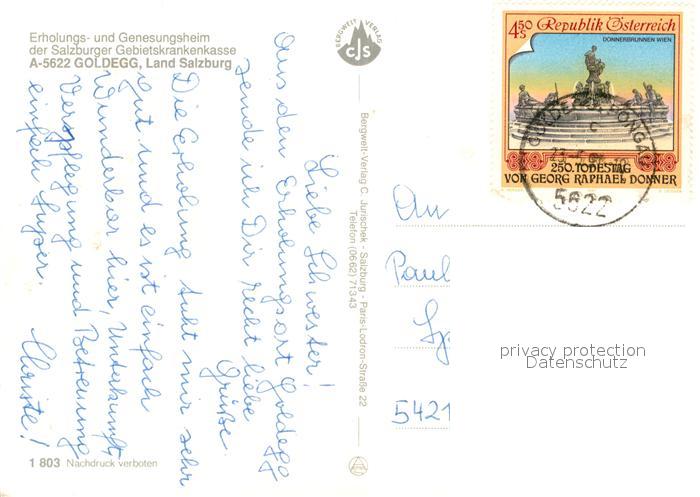 Erholungs- und Genesungsheim
der Salzburger Gebietskrankenkasse
A-5622 GOLDEGG, Land Salzburg
Liebe Schwester!
Aus dem Erholungsort Goldegg
sende ich Dir recht liebe
Grüße.
Die Erholung tuht mir sehr
gut und es ist einfach
Wunderbar hier, Unterkunft
Verpflegung und Betreuung
einfach Super.
Christl!
1 803 Nachdruck verboten
BERGWELT VERLAG
CJS
Bergwelt-Verlag C. Jurischek - Salzburg - Paris-Lodron-Straße 22
Telefon (0662) 71343
4.50 S
Republik Österreich
DONNERBRUNNEN WIEN
250. TODESTAG
VON GEORG RAPHAEL DONNER
5622
An
Paul
5421
privacy protection
Datenschutz